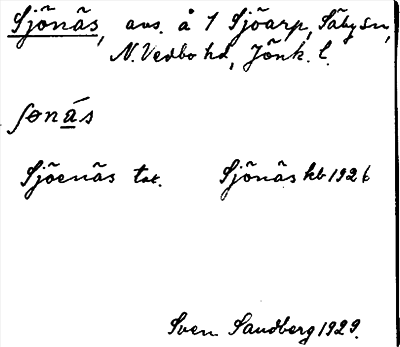 Sjönäs, avs. å 1 Sjöarp, Säby sn,
N. Vedbo hd, Jönk. l.
ʃɵnás
Sjöenäs tat. Sjönäs kb 1926
Sven Sandberg 1929.